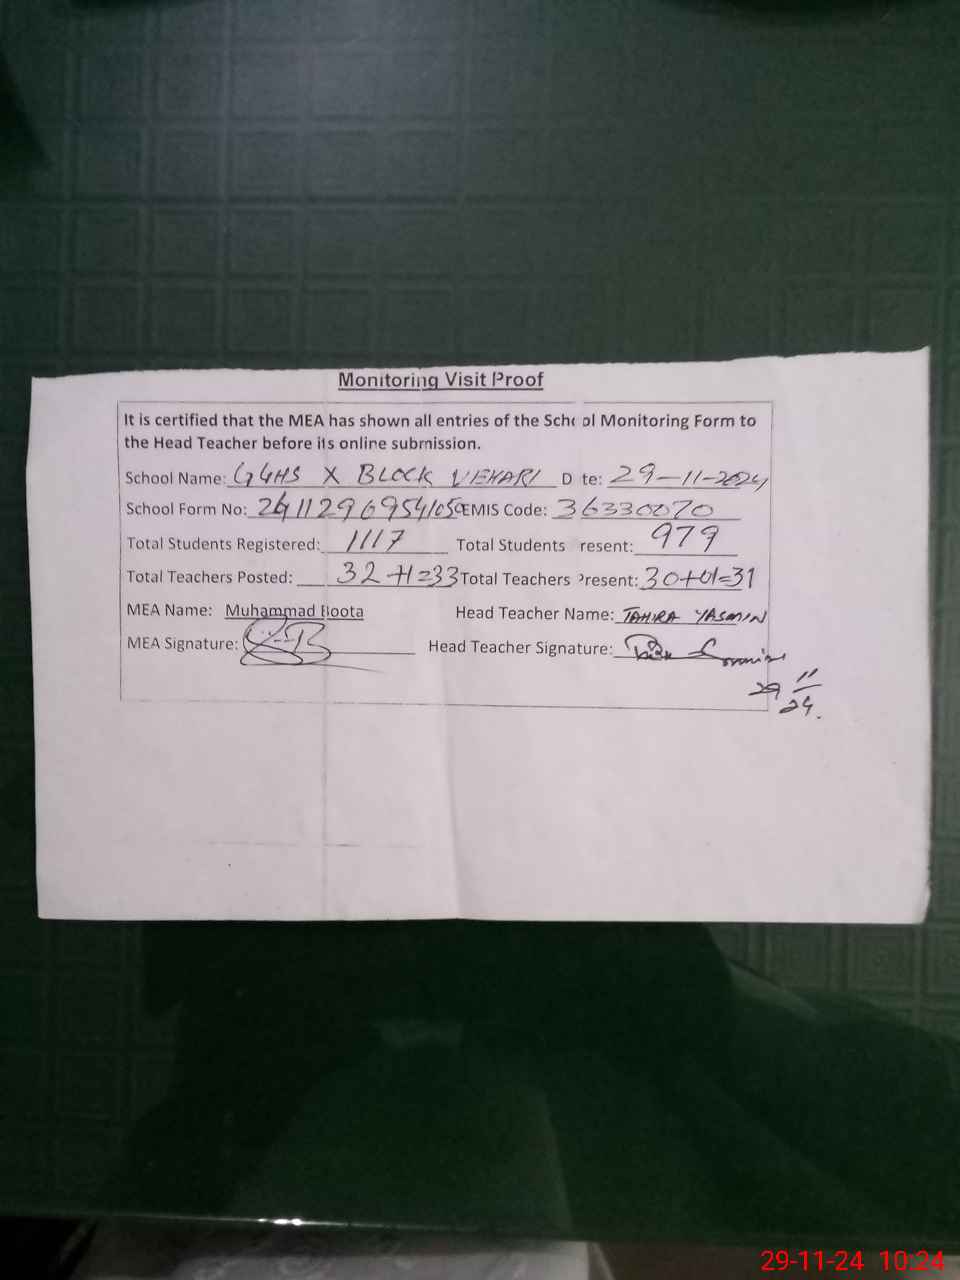 Monitoring Visit Proof
It is certified that the MEA has shown all entries of the School Monitoring Form to
the Head Teacher before its online submission.
School Name: GGHS X BLOCK VEHARI Date: 29-11-2024
School Form No: EMIS Code: 36330070
Total Students Registered: 1117 Total Students Present: 979
Total Teachers Posted: 32+1=33 Total Teachers Present: 30+01=31
MEA Name: Muhammad Boota Head Teacher Name: TAHIRA YASMIN
MEA Signature: Head Teacher Signature:
29 11/24.
29-11-24 10:24